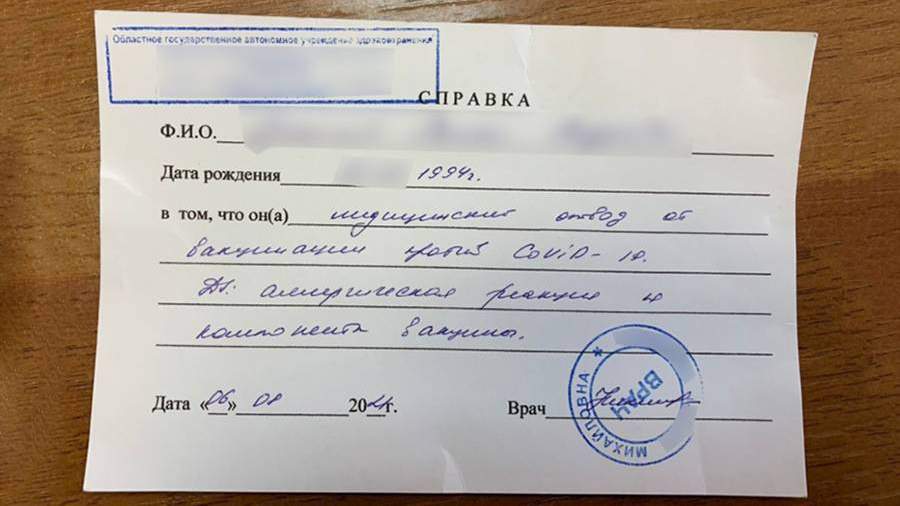 Областное государственное автономное учреждение здравоохранения
СПРАВКА
Ф.И.О.
Дата рождения 1994г.
в том, что он(а) медицинский отвод от
вакцинации против COVID-19.
DS: аллергическая реакция на
компоненты вакцины.
Дата «06» 08 20 г.
Врач
МИХАЙЛОВНА * ВРАЧ